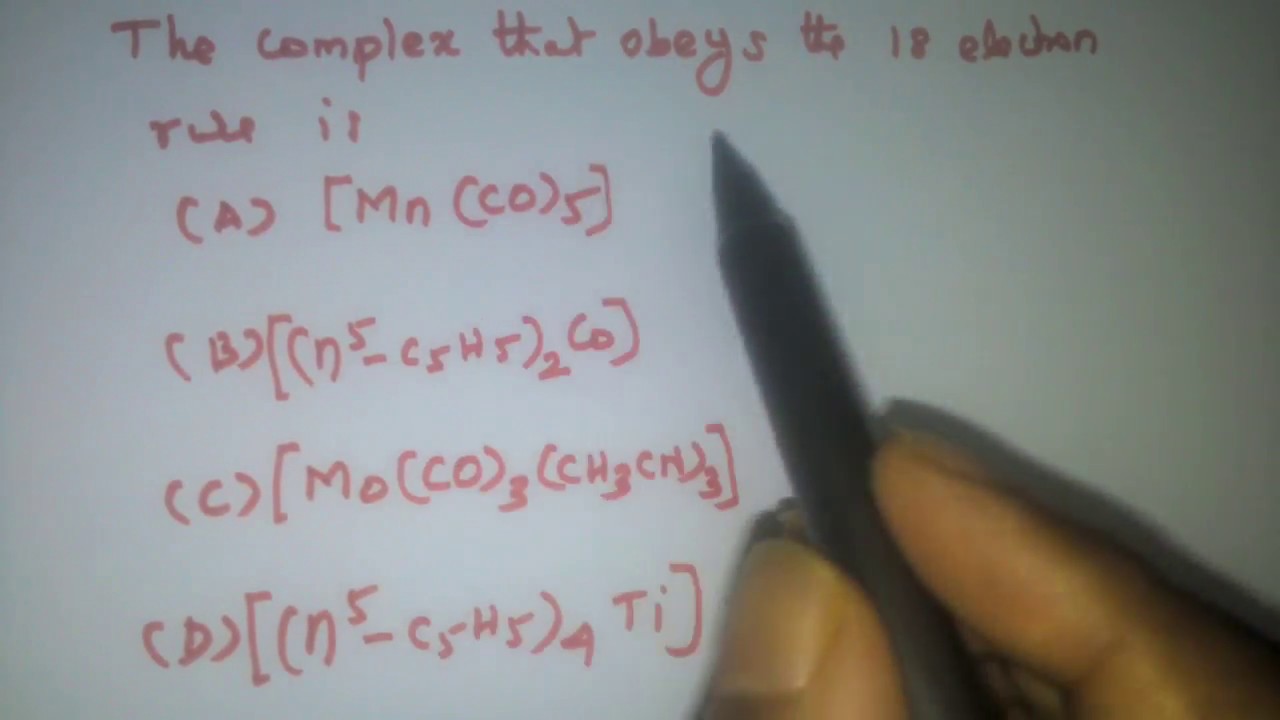 The complex that obeys the 18 electron
rule is
(A) [Mn (CO)5]
(B) [(η5-C5H5)2 Co]
(C) [Mo(CO)3(CH3CN)3]
(D) [(η5-C5H5)4 Ti]